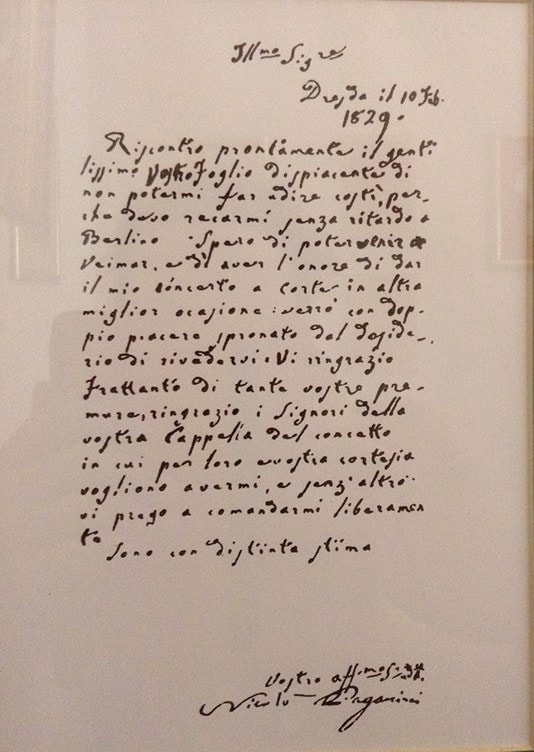 Illmo Sigre
Dresda il 10 Feb.
1829.
Riscontro prontamente il genti
lissimo Vostro Foglio dispiacente di
non potermi far udire costì, per-
che devo recarmi senza ritardo a
Berlino. Spero di poter venir a
Veimar, e di aver l'onore di dar
il mio concerto a Corte in altra
miglior ocasione: verrò con dop-
pio piacere spronato dal deside-
rio di rivedervi. Vi ringrazio
frattanto di tante vostre pre-
mure, ringrazio i Signori della
vostra Cappella del concetto
in cui per loro e vostra cortesia
vogliono avermi, e senz'altro
vi prego a comandarmi liberamen
te
Sono con distinta stima
Vostro affmo
Nicolò Paganini